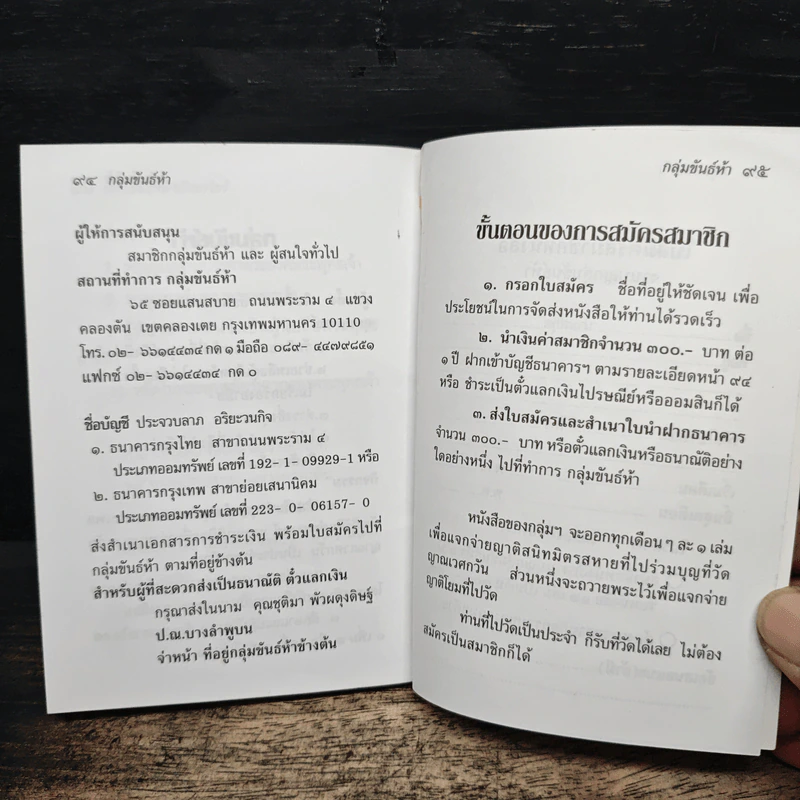 ๙๔ กลุ่มขันธ์ห้า
ผู้ให้การสนับสนุน
สมาชิกกลุ่มขันธ์ห้า และ ผู้สนใจทั่วไป
สถานที่ทำการ กลุ่มขันธ์ห้า
๖๕ ซอยแสนสบาย ถนนพระราม ๔ แขวง
คลองตัน เขตคลองเตย กรุงเทพมหานคร 10110
โทร. ๐๒- ๖๖๑๔๔๓๔ กด ๑ มือถือ ๐๘๙- ๔๔๗๙๘๕๑
แฟกซ์ ๐๒- ๖๖๑๔๔๓๔ กด ๐
ชื่อบัญชี ประจวบลาภ อริยะวนกิจ
๑. ธนาคารกรุงไทย สาขาถนนพระราม ๔
ประเภทออมทรัพย์ เลขที่ 192- 1- 09929-1 หรือ
๒. ธนาคารกรุงเทพ สาขาย่อยเสนานิคม
ประเภทออมทรัพย์ เลขที่ 223- 0- 06157- 0
ส่งสำเนาเอกสารการชำระเงิน พร้อมใบสมัครไปที่
กลุ่มขันธ์ห้า ตามที่อยู่ข้างต้น
สำหรับผู้ที่สะดวกส่งเป็นธนาณัติ ตั๋วแลกเงิน
กรุณาส่งในนาม คุณชุติมา พัวผดุงดิษฐ์
ป.ณ.บางลำพูบน
จ่าหน้า ที่อยู่กลุ่มขันธ์ห้าข้างต้น
กลุ่มขันธ์ห้า ๙๕
ขั้นตอนของการสมัครสมาชิก
๑. กรอกใบสมัคร ชื่อที่อยู่ให้ชัดเจน เพื่อ
ประโยชน์ในการจัดส่งหนังสือให้ท่านได้รวดเร็ว
๒. นำเงินค่าสมาชิกจำนวน ๓๐๐.- บาท ต่อ
๑ ปี ฝากเข้าบัญชีธนาคารฯ ตามรายละเอียดหน้า ๙๔
หรือ ชำระเป็นตั๋วแลกเงินไปรษณีย์หรือออมสินก็ได้
๓. ส่งใบสมัครและสำเนาใบนำฝากธนาคาร
จำนวน ๓๐๐.- บาท หรือตั๋วแลกเงินหรือธนาณัติอย่าง
ใดอย่างหนึ่ง ไปที่ทำการ กลุ่มขันธ์ห้า
หนังสือของกลุ่มฯ จะออกทุกเดือน ๆ ละ ๑ เล่ม
เพื่อแจกจ่ายญาติสนิทมิตรสหายที่ไปร่วมบุญที่วัด
ญาณเวศกวัน ส่วนหนึ่งจะถวายพระไว้เพื่อแจกจ่าย
ญาติโยมที่ไปวัด
ท่านที่ไปวัดเป็นประจำ ก็รับที่วัดได้เลย ไม่ต้อง
สมัครเป็นสมาชิกก็ได้